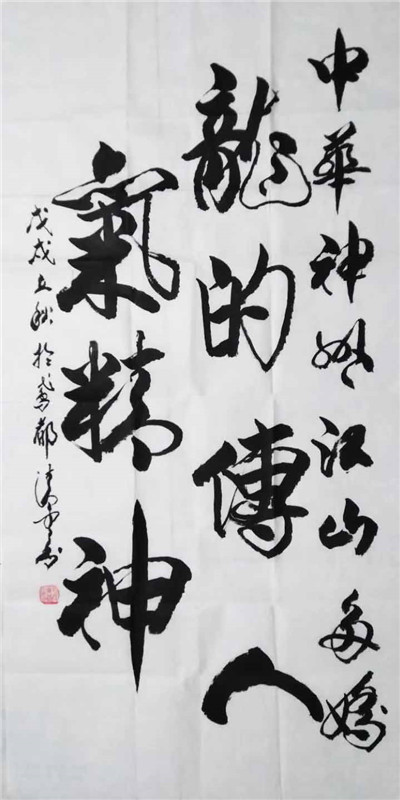 中華神州江山多嬌
龍的傳人
氣精神
戊戌立秋於鳶都清平书